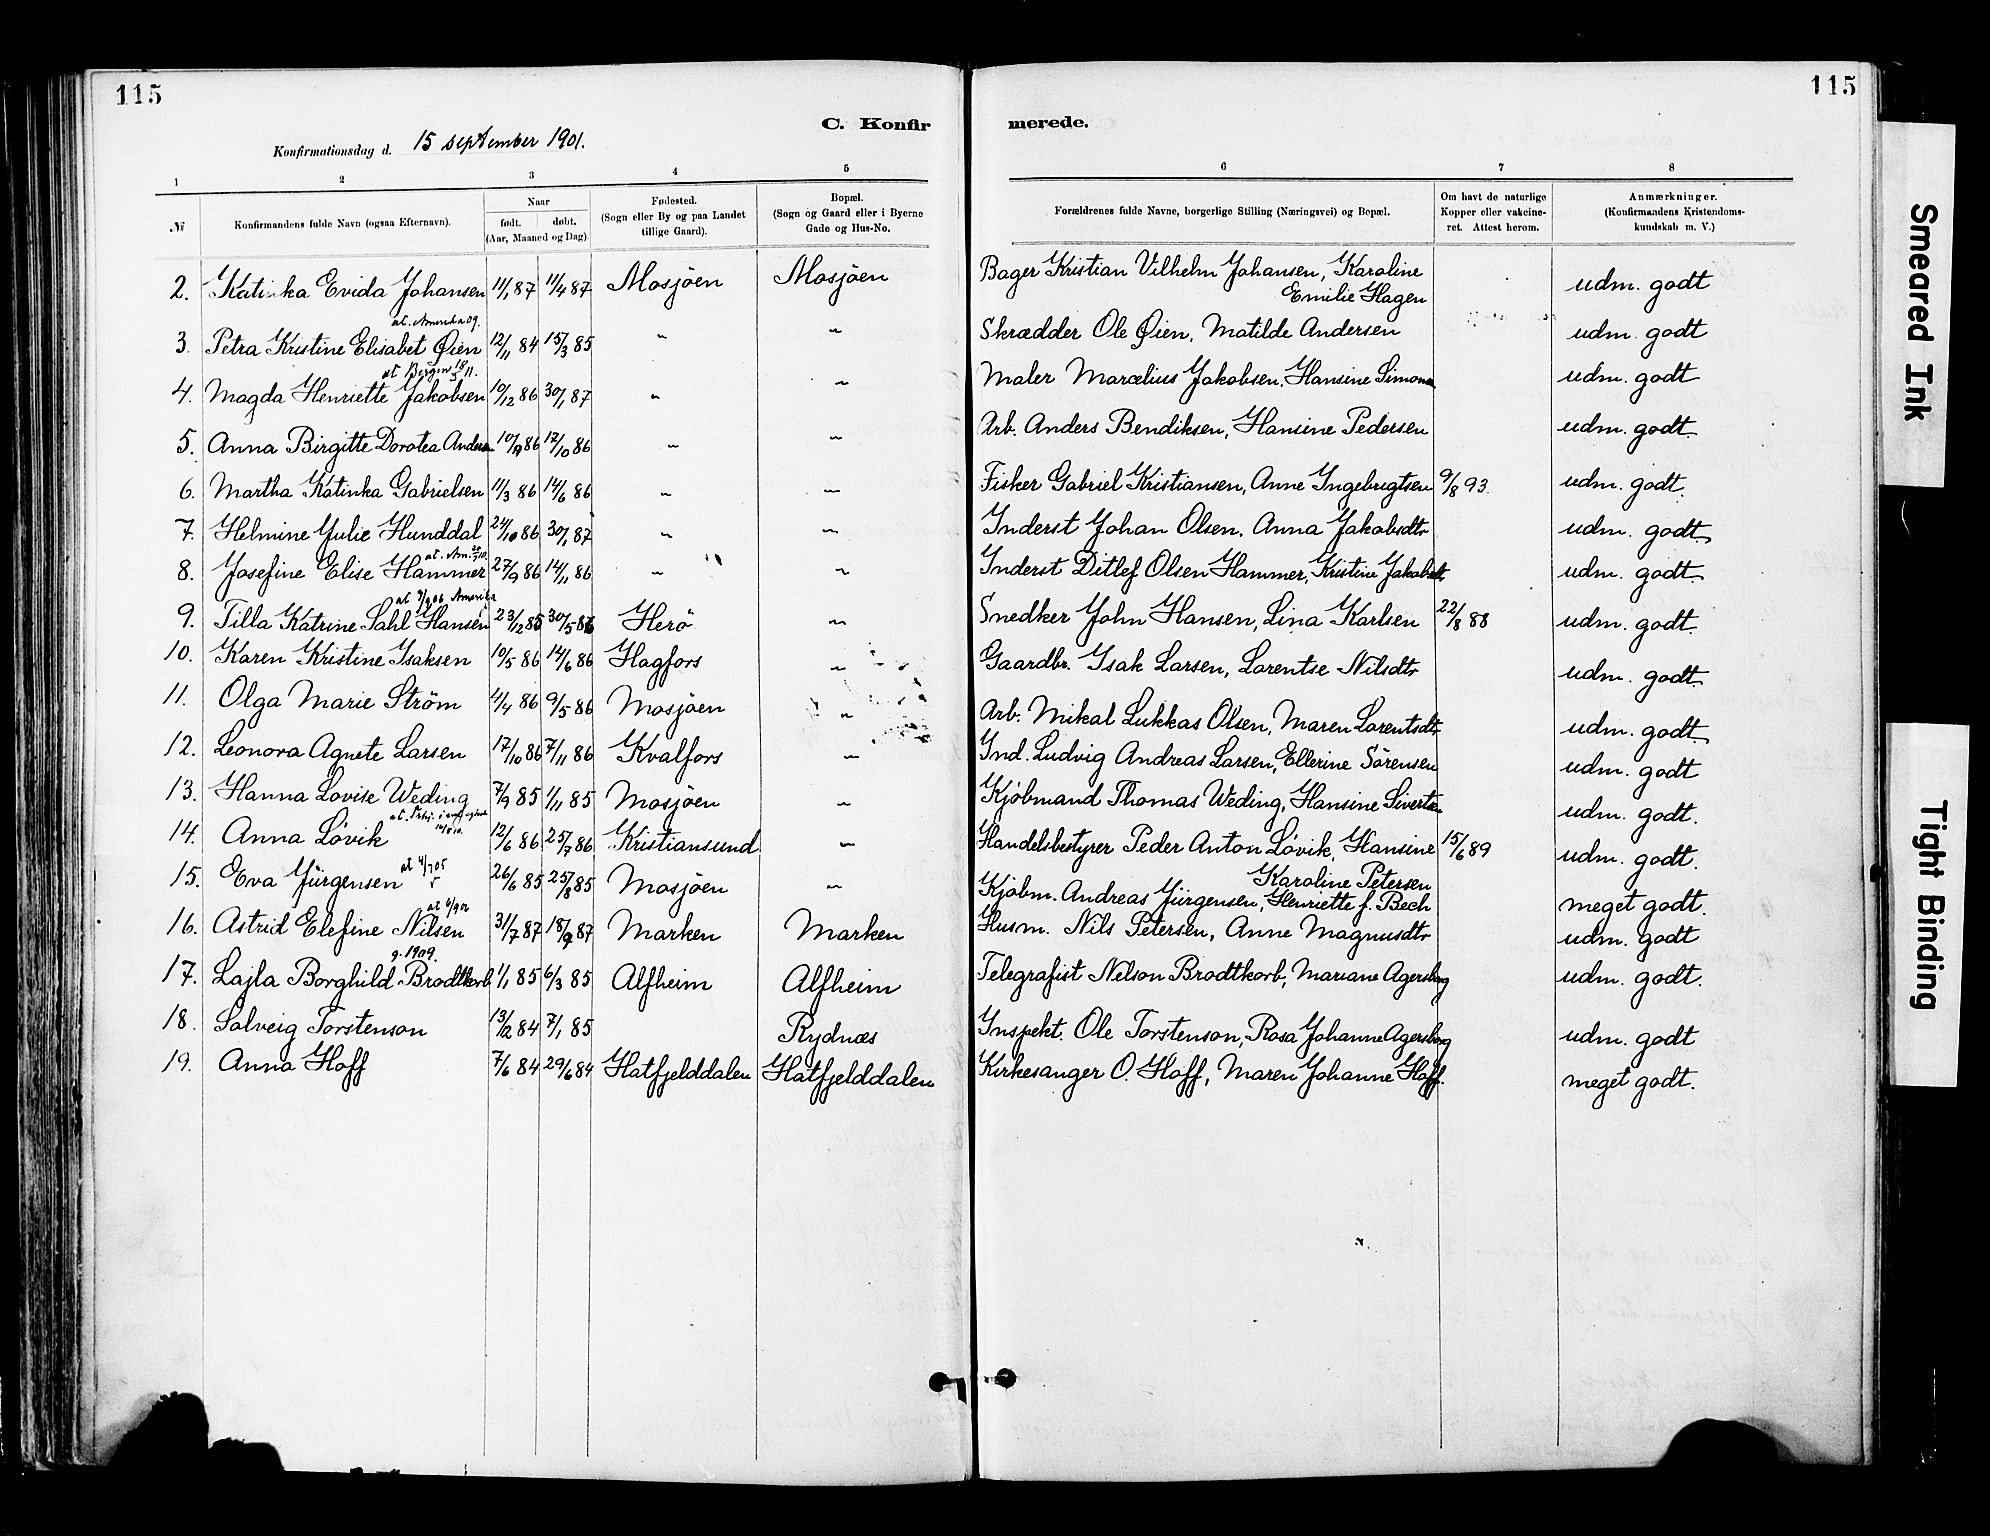 115
115
C. Konfir
merede.
Konfirmationsdag d. 15 september 1901.
1 2 3 4 5 6 7 8
№ Konfirmandens fulde Navn (ogsaa Efternavn). Naar født. døbt. (Aar, Maaned og Dag). Fødested. (Sogn eller By og paa Landet tillige Gaard). Bopæl. (Sogn og Gaard eller i Byerne Gade og Hus-No. Forældrenes fulde Navne, borgerlige Stilling (Næringsvei) og Bopæl. Om havt de naturlige Kopper eller vakcineret. Attest herom. Anmærkninger. (Konfirmandens Kristendomskundskab m. V.)
2. Katinka Evida Johansen 11/1 87 11/4 87 Mosjöen Mosjöen Bager Kristian Vilhelm Johansen, Karoline Emilie Hagen udm. godt
at. Amerika 09.
3. Petra Kristine Elisabet Øien 12/11 84 15/3 85 " " Skrædder Ole Øien, Matilde Andersen udm. godt
at Bergen 11.
4. Magda Henriette Jakobsen 10/12 86 30/1 87 " " Maler Marcelius Jakobsen, Hansine Simonsen udm. godt
5. Anna Birgitte Dorotea Andersen 10/9 86 12/10 86 " " Arb. Anders Bendiksen, Hansine Pedersen udm. godt.
6. Martha Katinka Gabrielsen 11/3 86 14/6 86 " " Fisker Gabriel Kristiansen, Anne Ingebrigtsen 9/8 93. udm. godt.
7. Helmine Julie Hunddal 24/10 86 30/1 87 " " Inderst Johan Olsen, Anna Jakobsdtr udm. godt.
at. Am.
8. Josefine Elise Hammer 27/9 86 14/11 86 " " Inderst Ditlef Olsen Hammer, Kristine Jakobsdtr. udm. godt.
at 9/9 06 Amerika
9. Tilla Katrine Sahl Hansen 23/12 85 30/5 86 Herö " Snedker John Hansen, Lina Karlsen 22/8 88 udm. godt.
10. Karen Kristine Isaksen 10/5 86 14/6 86 Hagfors " Gaardbr. Isak Larsen, Lorentse Nilsdtr udm. godt.
11. Olga Marie Ström 4/4 86 9/5 86 Mosjöen " Arb. Mikal Lukkas Olsen, Maren Lorentsdtr. udm. godt.
12. Leonora Agnete Larsen 17/10 86 7/11 86 Kvalfors " Ind. Ludvig Andreas Larsen, Ellerine Sörensen udm. godt
13. Hanna Lovise Weding 7/9 85 1/11 85 Mosjöen " Kjöbmand Thomas Weding, Hansine Sivertsen udm. godt.
14. Anna Lövik 12/6 86 25/7 86 Kristiansund " Handelsbestyrer Peder Anton Lövik, Hansine Karoline Petersen 15/6 89 udm. godt.
15. Eva Jürgensen at 4/7 05 26/6 85 25/8 85 Mosjöen " Kjöbm. Andreas Jürgensen, Henriette f. Bech meget godt.
at 6/9 02
16. Astrid Elefine Nilsen 31/7 87 18/9 87 Marken Marken Husm. Nils Petersen, Anne Magnusdtr udm. godt
g. 1909.
17. Lajla Borghild Brodtkorb 1/1 85 6/3 85 Alfheim Alfheim Telegrafist Nelson Brodtkorb, Mariane Agersborg udm. godt.
18. Solveig Torstenson 13/12 84 7/1 85 Rydnæs Inspekt. Ole Torstenson, Rosa Johanne Agersborg udm. godt
19. Anna Hoff 7/6 84 29/6 84 Hatfjelddalen Hatfjelddalen Kirkesanger O. Hoff, Maren Johanne Hoff. meget godt.
Smeared Ink
Tight Binding